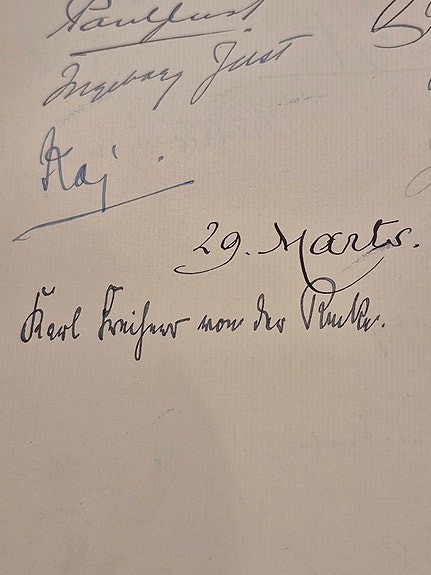 Ingeborg Just
Kaj
29. Marts.
Karl Freiherr von der